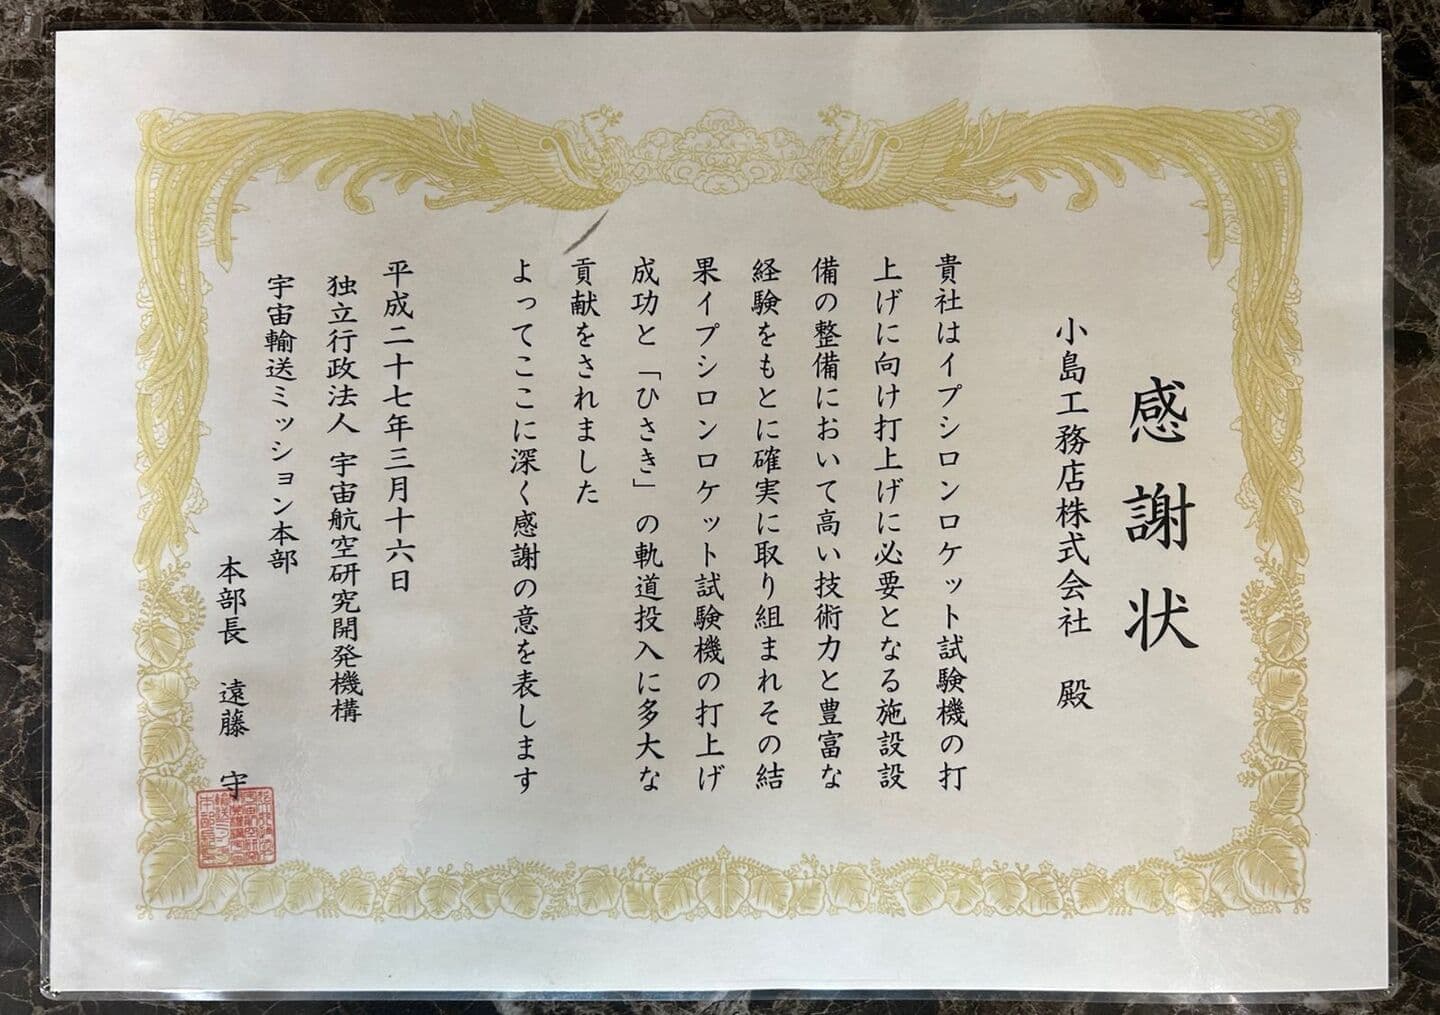 感謝状
小島工務店株式会社 殿
貴社はイプシロンロケット試験機の打
上げに向け打上げに必要となる施設設
備の整備において高い技術力と豊富な
経験をもとに確実に取り組まれその結
果イプシロンロケット試験機の打上げ
成功と「ひさき」の軌道投入に多大な
貢献をされました
よってここに深く感謝の意を表します
平成二十七年三月十六日
独立行政法人 宇宙航空研究開発機構
宇宙輸送ミッション本部
本部長 遠藤 守